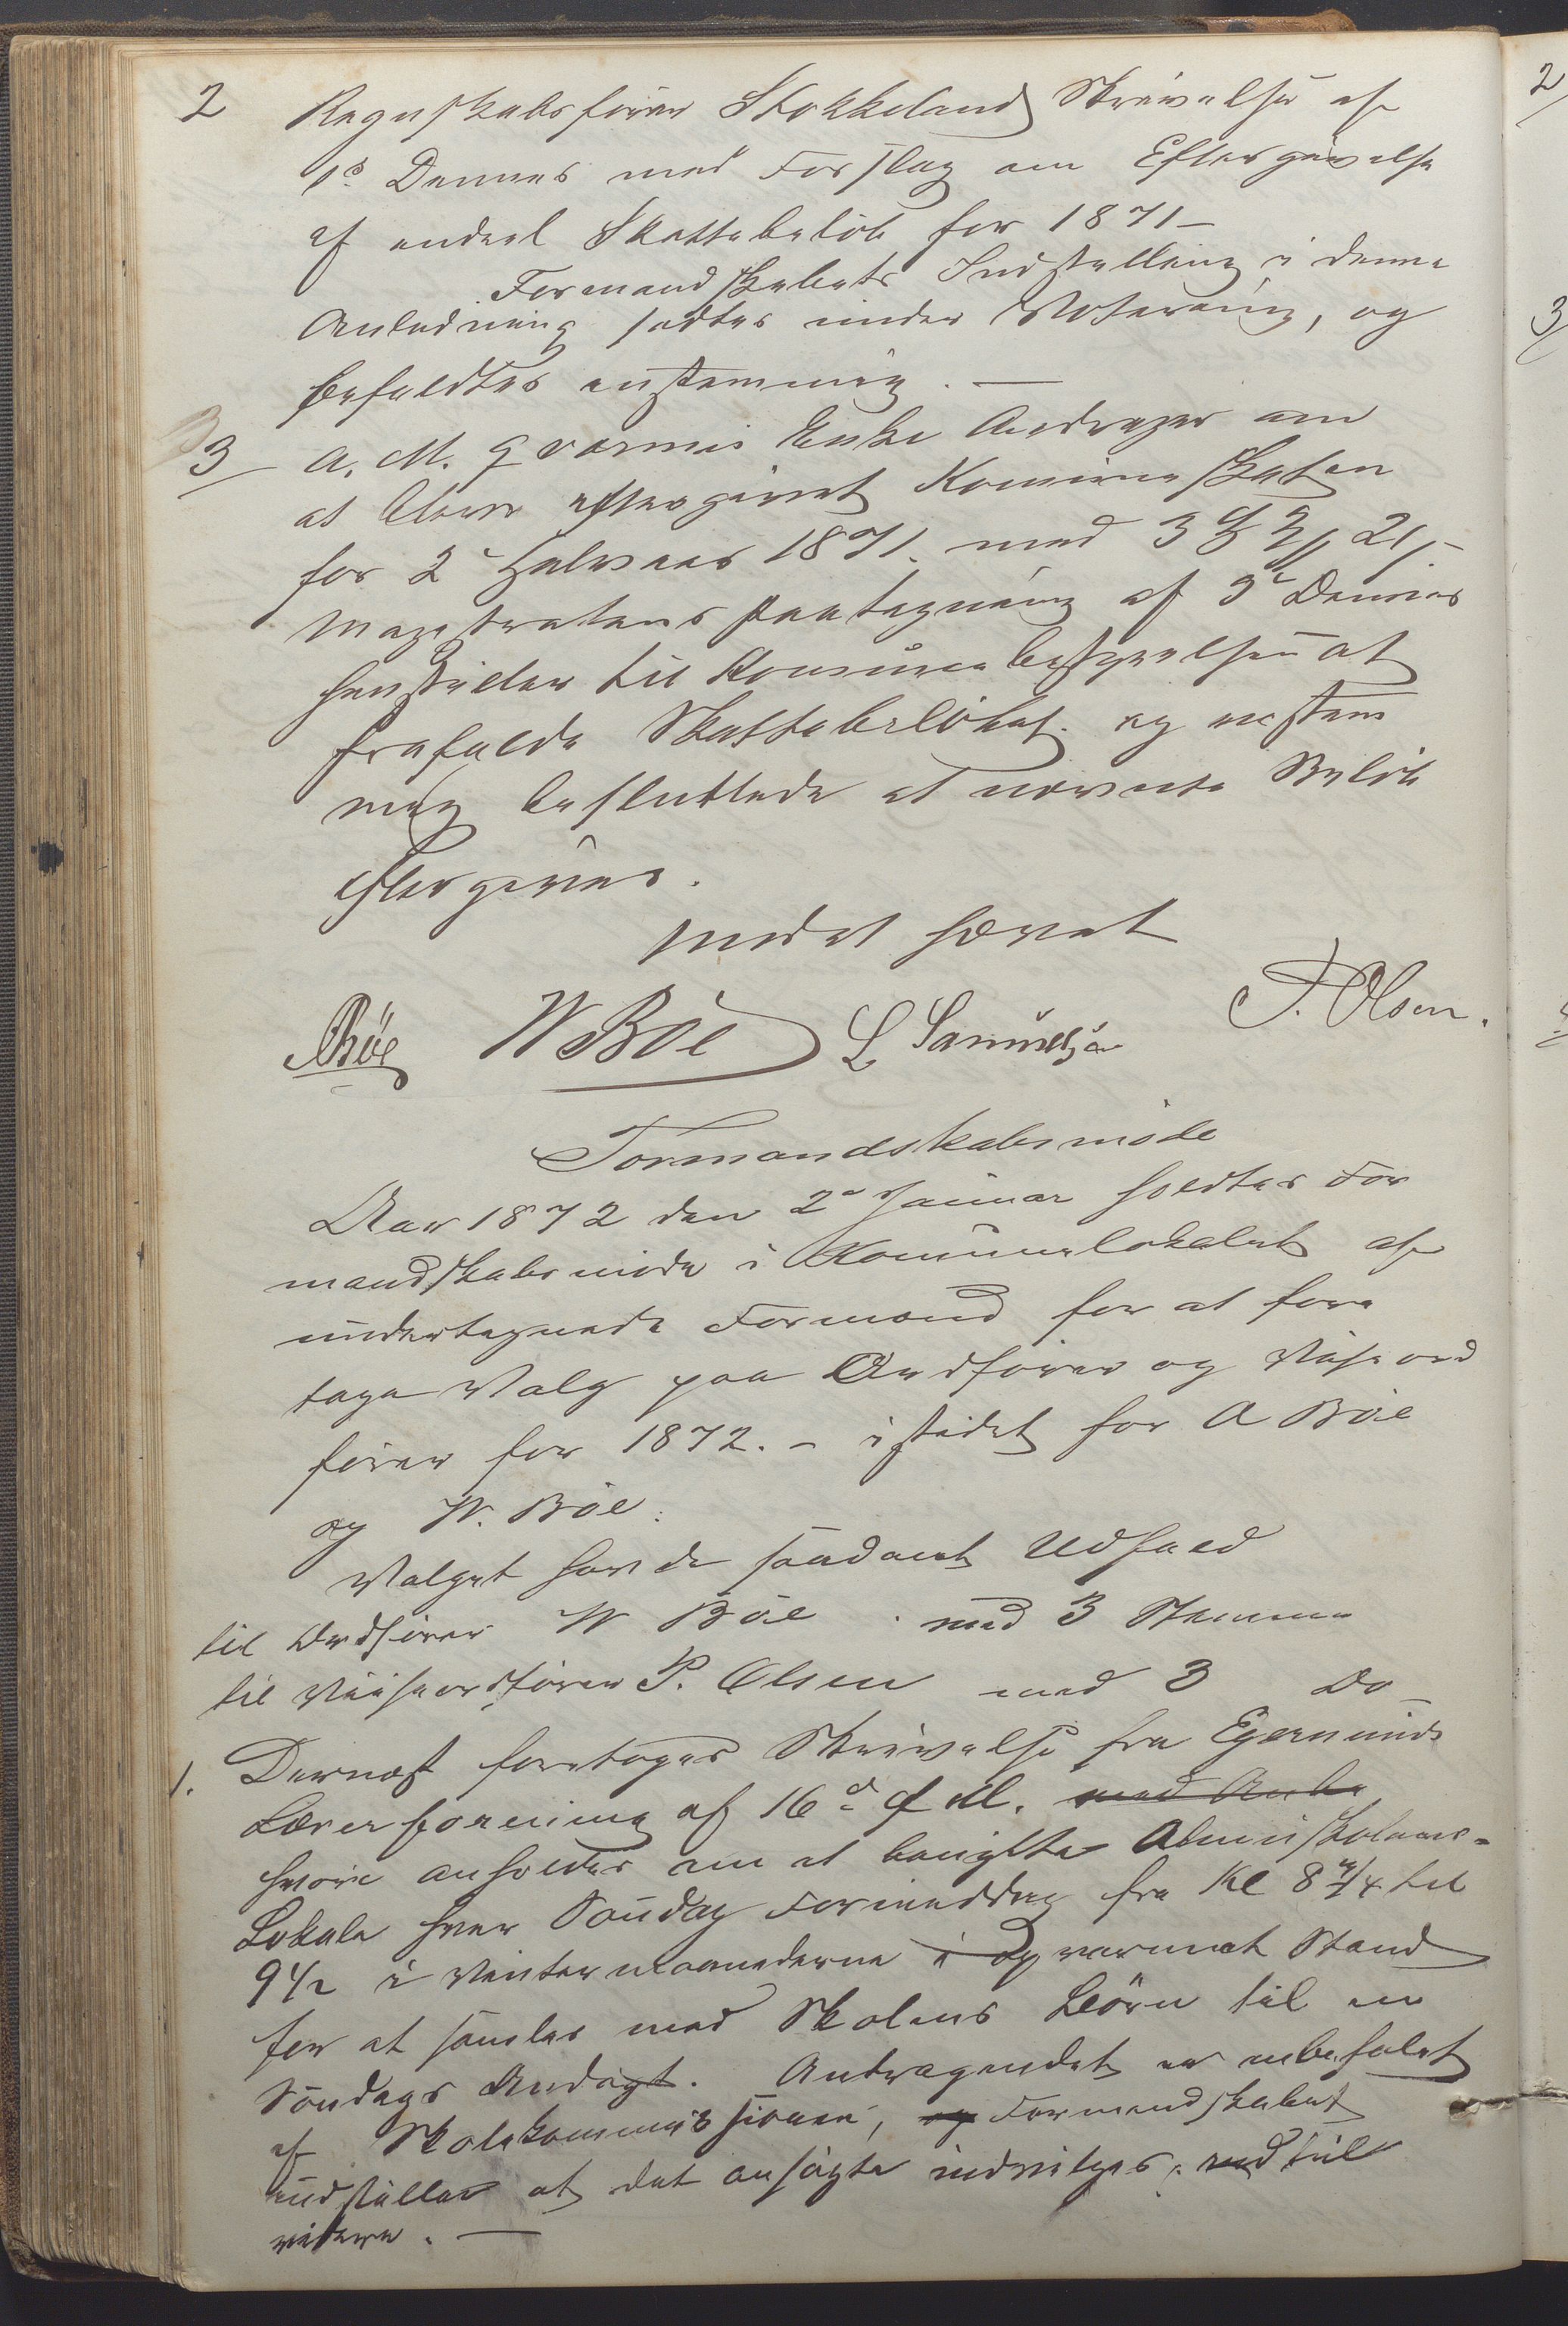 2 Regnskabsfører Stokkeland Skrivelse af
1ste Dennes med Forslag om Eftergivelse
af endeel Skattebeløb for 1871 –
Formandskabets Indstilling i denne
Anledning sattes under Votering, og
befuldtes enstemmig. —
3 A. M. Qvarmes Enke Andrager om
at blive eftergivet Kommuneskatten
for 2 Halvaar 1871. med 3 21,–
Magistratens Paategning af 9de Dennes
henstiller til Kommunebestyrelsen at
frafalde Skattebeløbet. og enstem
mig besluttede at nævnte Beløb
eftergives.
Mødet hævet
ABöe W Böe L Samuelsen P. Olsen.
Formandskabsmøde
Aar 1872 den 2den Januar holdtes For
mandskabsmøde i Kommunelokalet af
undertegnede Formænd for at fore
tage Valg paa Ordfører og Viseord
fører for 1872. – istedet for A Böe
og W. Böe.
Valget havde saadant Udfald
til Ordfører W Böe med 3 Stemmer
til Viiseordfører P. Olsen med 3 Do
1. Dernæst foretoges Skrivelse fra Egersunds
Lærerforening af 16de f. M. med
hvori anholdes om at benytte Almuskolens-
Lokale hver Søndag Formiddag fra Kl 8 3/4 til
9 1/2 i Vintermaanederne i Opvarmet Stand
for at samles med Skolens Börn til en
Søndags Andagt. Andragendet er anbefalet
af Skolekommissionen, og Formandskabet
indstiller at det ansøgte indvilges, indtil
videre. —
2
3